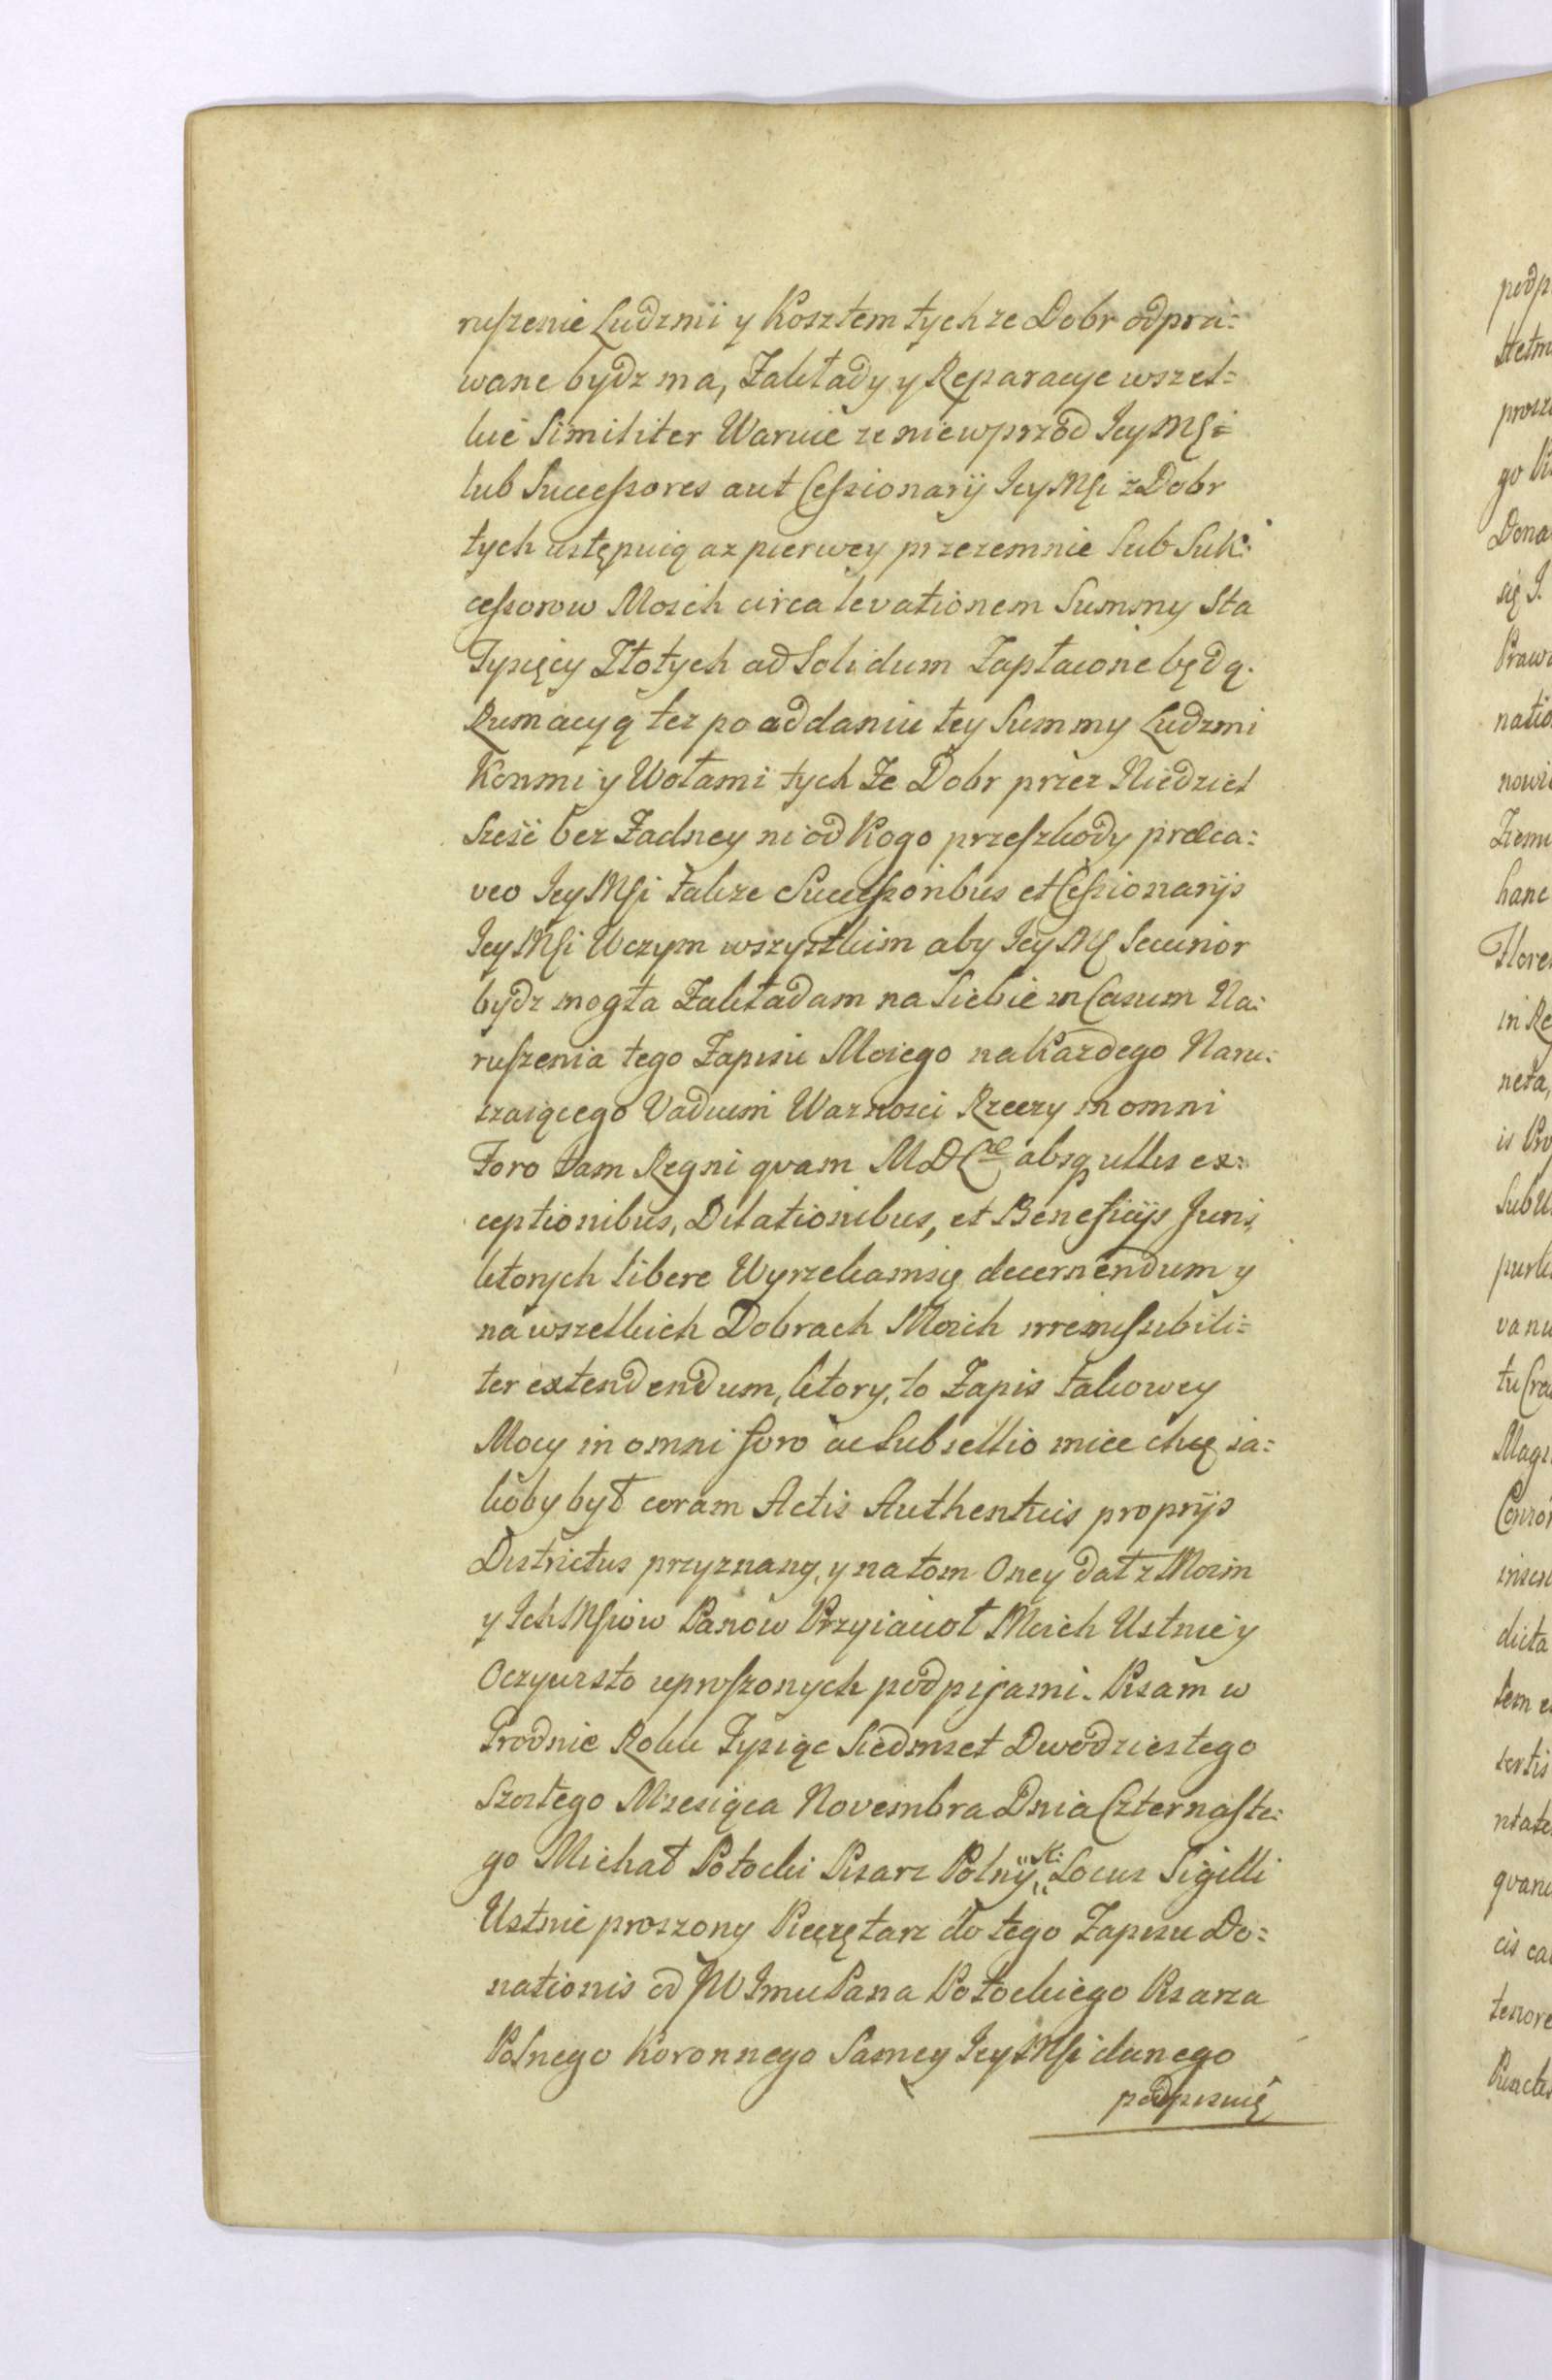 ruszenie Ludzmi y Kosztem tychze Dobr odpra=
wane bydz ma, Zakłady y Reparacye wszel=
kie Similiter Waruie ze niewprzod Jey Mſć
lub Successores aut Cessionarij Jey Mſći z Dobr
tych ustępuią az pierwey przezemnie lub Suk=
cessorow Moich circa levationem Summy Sta
Tysięcy Złotych ad Solidum Zapłacone będą.
Rumacyą tez po oddaniu tey Summy Ludzmi
Konmi y Wołami tych Ze Dobr przez Niedziel
Sześć bez Zadney ni od Kogo przeszkody præca=
veo Jey Mſći takze Successoribus et Cessionarijs
Jey Mſći Wczym wszystkim aby Jey Mſć Securior
bydz mogła Zakładam na Siebie in Casum Na=
ruszenia tego Zapisu Moiego na Kazdego Naru=
szaiącego Vadium Wazności Rzeczy in omni
Foro tam Regni qvam MDLæ absq ullis ex=
ceptionibus, Dilationibus, et Beneficijs Juris,
ktorych libere Wyrzekamsię decernendum y
na wszelkich Dobrach Moich irremissibili=
ter extendendum, ktory, to Zapis takowey
Mocy in omni foro ac Subsellio miec chcę ia=
koby był coram Actis Authenticis proprijs
Districtus przyznany, y na tom Oney dał z Moim
y Ich Mſciow Panow Przyiacioł Moich Ustnie y
Oczywisto uproszonych podpisami. Pisam w
Grodnie Roku Tysiąc Siedmset Dwodziestego
Szostego Miesiąca Novembra Dnia Czternaste=
go Michał Potocki Pisarz Polny „K: Locus Sigilli
Ustnie proszony Pieczętarz do tego Zapisu Do=
nationis od JW Jmci Pana Potockiego Pisarza
Polnego Koronnego Samey Jey Mſći danego
podpisuię